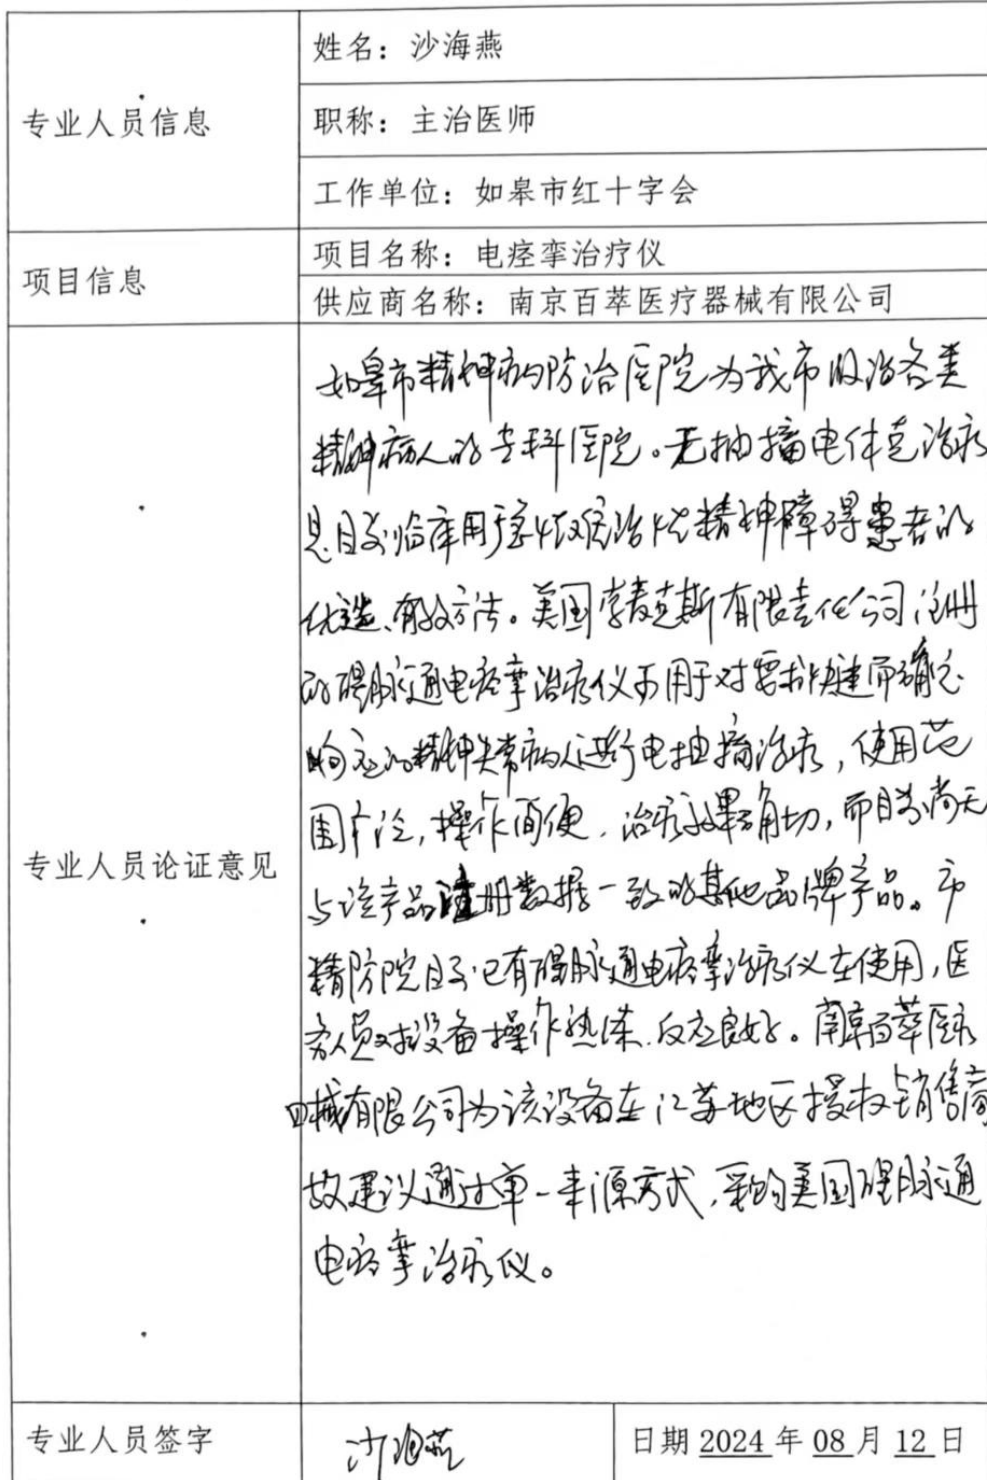 专业人员信息
姓名：沙海燕
职称：主治医师
工作单位：如皋市红十字会
项目信息
项目名称：电痉挛治疗仪
供应商名称：南京百萃医疗器械有限公司
专业人员论证意见
如皋市精神病防治医院为我市收治各类
精神病人的专科医院。无抽搐电休克治疗
是目前临床用于重性难治性精神障碍患者的
优选、有效方法。美国索麦克斯有限责任公司注册
的醒脉通电痉挛治疗仪可用于对要求快速而确定
响应的精神失常病人进行电抽搐治疗，使用范
围广泛，操作简便，治疗效果确切，而目前尚无
与该产品注册数据一致的其他品牌产品。市
精防院目前已有醒脉通电痉挛治疗仪在使用，医
务人员对设备操作熟练，反应良好。南京百萃医疗
械有限公司为该设备在江苏地区授权销售商
故建议通过单一来源方式，采购美国醒脉通
电痉挛治疗仪。
专业人员签字
沙海燕
日期 2024 年 08 月 12 日